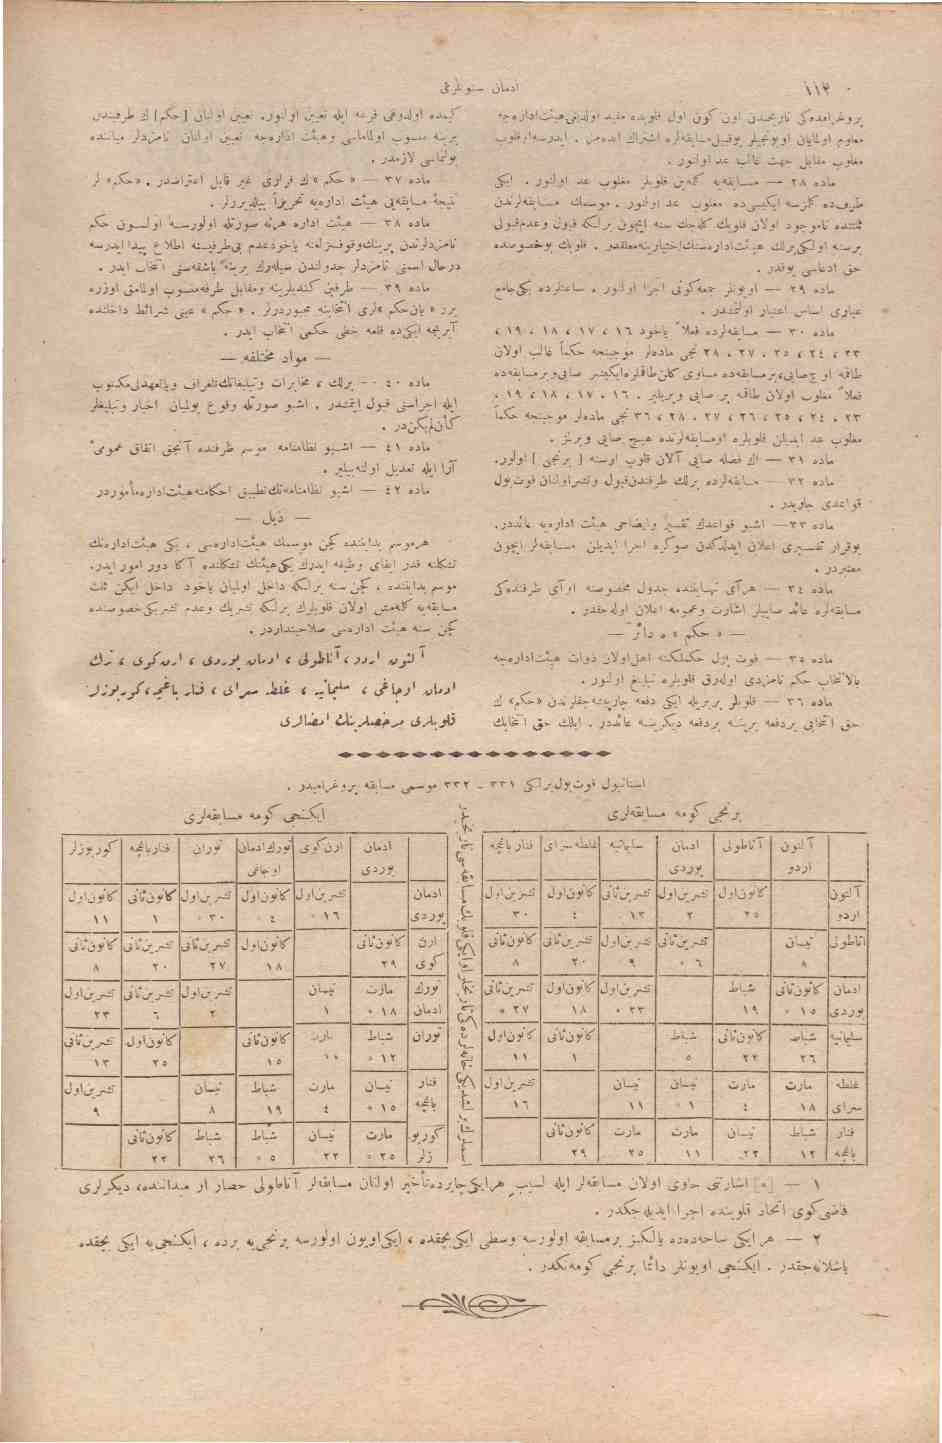 ١١٢
ادمان سنوطرفى
پروغرامده‌كى تاريخندن اون كون اول قلوبده مقيد اولديغى هيئت اداره‌جه
معلوم اولمايان اويونجيلر بوقبيل مسابقه‌لره اشتراك ايده‌مز . ايدرسه او قلوب
مغلوب مقابل جهت غالب عد اولنور .
ماده ٢٨ — مسابقه‌يه كلمه‌ين قلوبلر مغلوب عد اولنور . ايكى
طرف‌ده كلمزسه ايكيسى‌ده مغلوب عد اولنور . موسمك مسابقه‌لرندن
ثلثنده ناموجود اولان قلوبك كله‌جك سنه ايچون برلكه قبول وعدم قبولى
برسنه اولكى برلك هيئت اداره‌سنك اختيارينه معلقدر . قلوبك بوخصوصده
حق ادعاسى يوقدر .
ماده ٢٩ — اويونلر جمعه كونى اجرا اولنور . ساعتلرده يكى جامع
عيارى اساس اعتبار اولنمشدر .
ماده ٣٠ — مسابقه‌لرده فعلاً ياخود ١٦ ، ١٧ ، ١٨ ، ١٩ ،
٢٣ ، ٢٤ ، ٢٥ ، ٢٧ ، ٢٨ نجى ماده‌لر موجبنجه حكماً غالب اولان
طاقمه اوچ صايى ، برمسابقه‌ده مساوى كلن طاقملره ايكيشر صايى وبر مسابقه‌ده
فعلاً مغلوب اولان طاقمه بر صايى ويريلير . ١٦ ، ١٧ ، ١٨ ، ١٩ ،
٢٣ ، ٢٤ ، ٢٥ ، ٢٦ ، ٢٧ ، ٢٨ ، ٣٦ نجى ماده‌لر موجبنجه حكماً
مغلوب عد ايديلن قلوبلره اومسابقه‌لرنده هيچ صايى ويرلمز .
ماده ٣١ — اك فضله صايى آلان قلوب اوسنه [ برنجى ] اولور.
ماده ٣٢ — مسابقه‌لرده برلك طرفندن قبول ونشر اولنان فوت بول
قواعدى جاريدر .
ماده ٣٣ — اشبو قواعدك تفسير وايضاحى هيئت اداره‌يه عائددر.
بوقرار تفسيرى اعلان ايدلدكدن صوكره اجرا ايديلن مسابقه‌لر ايچون
معتبردر .
ماده ٣٤ — هرآى نهايتنده جدول مخصوصنه اوآى ظرفنده‌كى
مسابقه‌لره عائد صاييلر اشارت وعمومه اعلان اوله‌جقدر .
— « حكم » ه دائر —
ماده ٣٥ — فوت بول حكملكنه اهل اولان ذوات هيئت اداره‌جه
بالانتخاب حكم نامزدى اوله‌رق قلوبلره تبليغ اولنور .
ماده ٣٦ — قلوبلر بربريله ايكى دفعه چارپيشه‌جقلرندن «حكم» ك
حق انتخابى بردفعه برينه بردفعه ديكرينه عائددر . ايلك حق انتخابك
كيمده اولدوغى قرعه ايله تعيين اولنور. تعيين اولنان [حكم] ك طرفيندن
برينه منسوب اولماماسى وهيئت اداره‌جه تعيين اولنان نامزدلر مياننده
بولنماسى لازمدر .
ماده ٣٧ — « حكم » ك قرارى غير قابل اعتراضدر . «حكم» لر
نتيجهٔ مسابقه‌يى هيئت اداره‌يه تحريراً بيلديررلر .
ماده ٣٨ — هيئت اداره هرنه صورتله اولورسه اولسون حكم
نامزدلرندن برينك وقوفسزلغنه ياخود عدم بى‌طرفيسنه اطلاع پيدا ايدرسه
درحال اسمنى نامزدلر جدولندن سيله‌رك يرينه باشقه‌سنى انتخاب ايدر .
ماده ٣٩ — طرفين كنديلرينه ومقابل طرفه منسوب اولمامق اوزره
برر « يان حكم » لرى انتخابنه مجبوردرلر . « حكم » عينى شرائط داخلنده
آيريجه ايكى‌ده قلعه خطى حكمى انتخاب ايدر .
— مواد مختلفه —
ماده ٤٠ — برلك ، مخابرات وتبليغاتك تلغراف وياتعهدلى مكتوب
ايله اجراسنى قبول ايتمشدر . اشبو صورتله وقوع بولميان اخبار وتبليغلر
كأن لم يكن در .
ماده ٤١ — اشبو نظامنامه موسم ظرفنده آنجق اتفاق عمومى
آرا ايله تعديل اولنه‌بيلير .
ماده ٤٢ — اشبو نظامنامه‌نك تطبيق احكامنه هيئت اداره مأموردر
— ذيل —
هرموسم بداينده كچن موسمك هيئت اداره‌سى ، يكى هيئت اداره‌نك
تشكلنه قدر ايفاى وظيفه ايدرك يكى هيئتك تشكلنده آكا دور امور ايدر.
موسم بدايتنده ، كچن سنه برلكه داخل اولميان ياخود داخل ايكن ثلث
مسابقه‌يه كلمه‌مش اولان قلوبلرك برلكه تشريك وعدم تشريكى خصوصنده
كچن سنه هيئت اداره‌سى صلاحيتداردر .
آلتون اردو ، آناطولى ، ادمان يوردى ، ارن كوى ، ترك
ادمان اوجاغى ، سليمانيه ، غلطه سراى ، فنار باغچه ، كوربوزلر
قلوبلرى مرخصلرينك امضالرى
استانبول فوت بول برلكى ٣٣١ - ٣٣٢ موسمى مسابقه پروغراميدر .
برنجى كومه مسابقه‌لرى
آلتون اردو | آناطولى | ادمان يوردى | سليمانيه | غلطه سراى | فنار باغچه
آلتون اردو | | كانون اول ٢٥ | تشرين اول ٢ | تشرين ثانى ١٣ | كانون اول ٤ | تشرين اول ٣٠
اناطولى | نيسان ٨ | | تشرين ثانى ٦ * | تشرين اول ٩ * | تشرين ثانى ٢٠ | كانون ثانى ٨
ادمان يوردى | كانون ثانى ١٥ * | شباط ١٩ | | تشرين اول ٢٣ * | كانون اول ١٨ | تشرين ثانى ٢٧ *
سليمانيه | شباط ٢٦ | كانون ثانى ٢٢ | شباط ٥ | | كانون ثانى ١ | كانون اول ١١
غلطه سراى | مارت ١٨ | مارت ٤ | نيسان ١ * | نيسان ١١ | | تشرين اول ١٦
فنار باغچه | شباط ١٢ | نيسان ٢٢ | مارت ١١ | مارت ٢٥ | كانون ثانى ٢٩ |
ايكنجى كومه مسابقه‌لرى
ادمان يوردى | ارن كوى | تورك ادمان اوجاغى | توران | فنار باغچه | كوربوزلر
ادمان يوردى | | تشرين اول ١٦ * | كانون اول ٤ * | تشرين اول ٣٠ * | كانون ثانى ١ | كانون اول ١١
ارن كوى | كانون ثانى ٢٩ | | كانون اول ١٨ | تشرين ثانى ٢٧ | تشرين ثانى ٢٠ | كانون ثانى ٨
تورك ادمان | مارت ١٨ * | نيسان ١ | | تشرين اول ٢ | تشرين ثانى ٦ | تشرين اول ٢٣
توران | شباط ١٢ * | مارت | كانون ثانى ١٥ | | كانون اول ٢٥ | تشرين ثانى ١٣
فنار باغچه | نيسان ١٥ * | مارت ٤ | شباط ١٩ | نيسان ٨ | | تشرين اول ٩
كوربوزلر | مارت ٢٥ * | نيسان ٢٢ | شباط ٥ * | شباط ٢٦ | كانون ثانى ٢٢ |
١ — [*] اشارتنى حاوى اولان مسابقه‌لر ايله لسبب هرايكى چايرده تأخير اولنان مسابقه‌لر آناطولى حصار ار ميداننده ، ديكرلرى
قاضى كوى اتحاد قلوبنده اجرا ايديله جكدر .
٢ — هر ايكى ساحه‌ده‌ده يالكيز برمسابقه اولورسه وسطى ايكى بچقده ، ايكى اويون اولورسه برنجى‌يه برده ، ايكنجى‌يه ايكى بچقده
باشلانه‌جقدر . ايكنجى اويونلر دائما برنجى كومه‌نكدر .